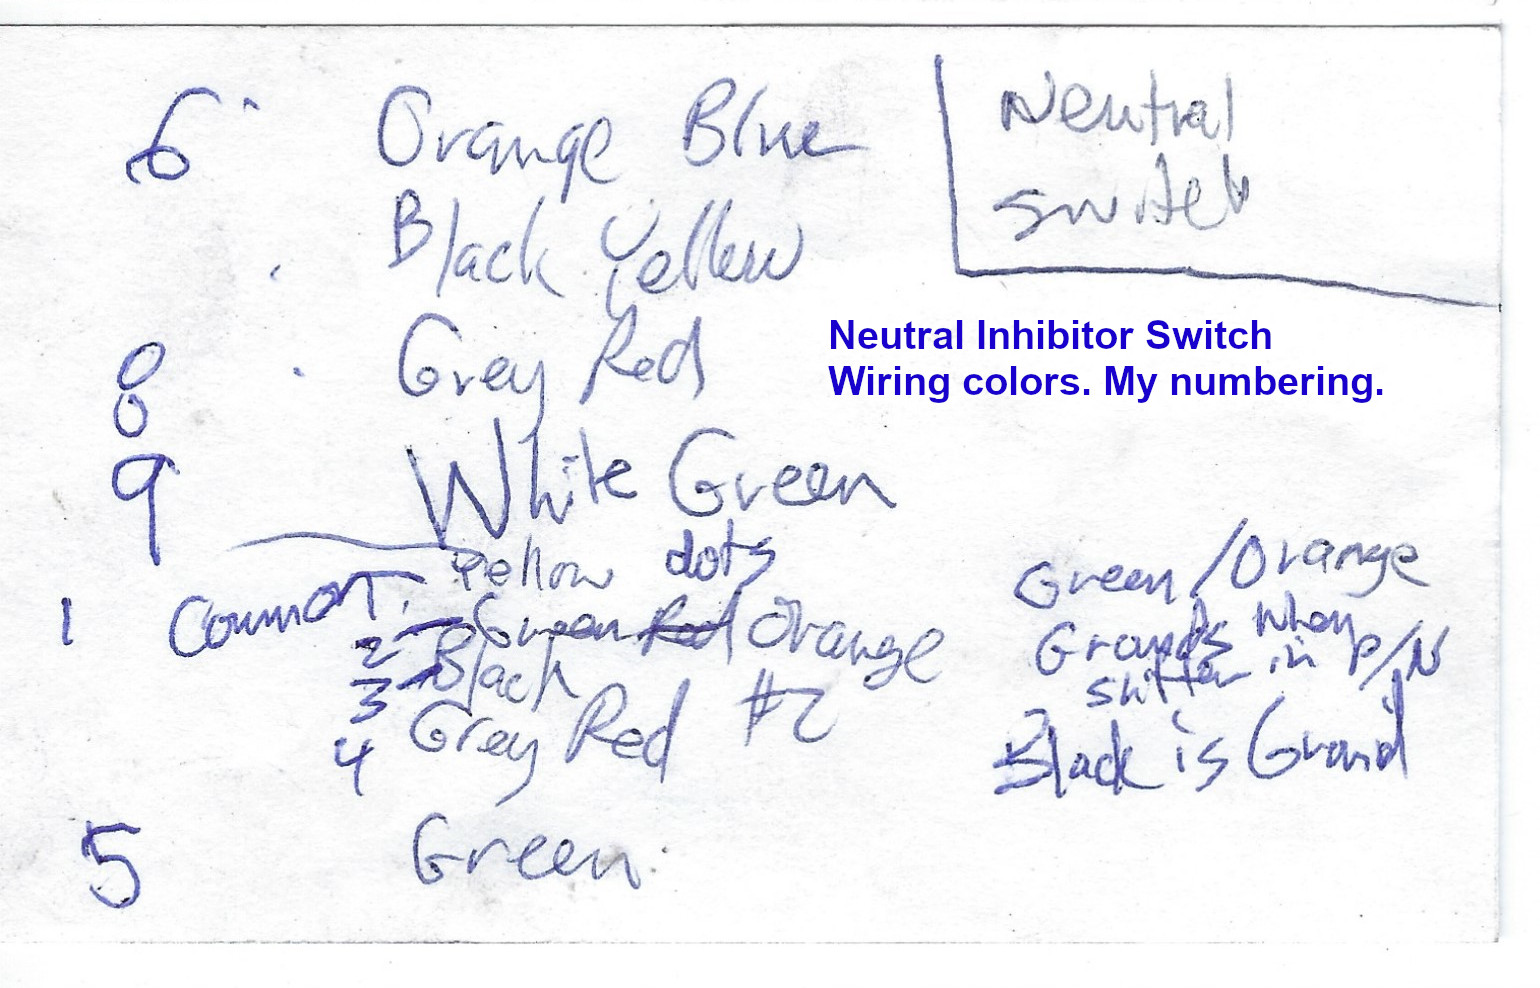 6 Orange Blue
Neutral
Switch
Black Yellow
Neutral Inhibitor Switch
Wiring colors. My numbering.
8 Grey Red
9 White Green
Yellow dots
1 Common
2 Green Red Orange
3 Black
4 Grey Red #2
5 Green
Green/Orange
Grounds when
shifter in P/N
Black is Ground